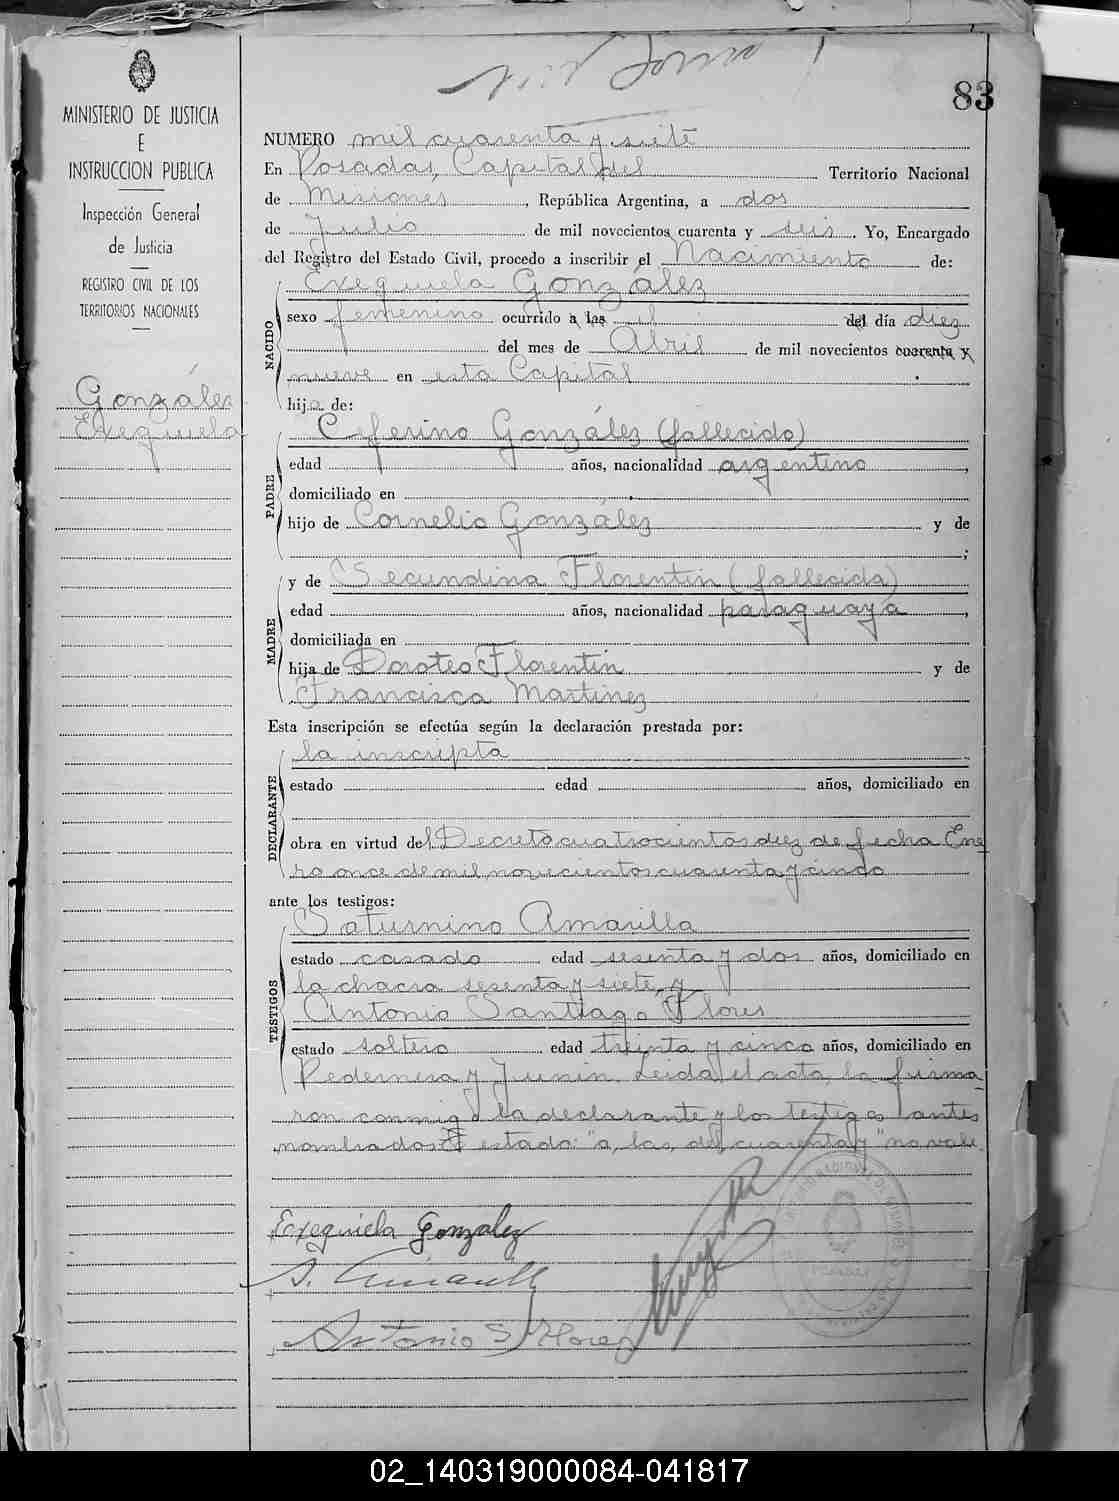 83
MINISTERIO DE JUSTICIA
E
INSTRUCCION PUBLICA
Inspección General
de Justicia
REGISTRO CIVIL DE LOS
TERRITORIOS NACIONALES
González
Exequiela
NUMERO mil cuarenta y siete
En Posadas, Capital del Territorio Nacional
de Misiones, República Argentina, a dos
de Julio de mil novecientos cuarenta y seis. Yo, Encargado
del Registro del Estado Civil, procedo a inscribir el Nacimiento de:
NACIDO
Exequiela González
sexo femenino ocurrido a las el del día diez
del mes de Abril de mil novecientos cuarenta y
nueve en esta Capital
hija de:
PADRE
Ceferino González (fallecido)
edad años, nacionalidad argentino,
domiciliado en
hijo de Cornelio González y de
;
MADRE
y de Secundina Florentin (fallecida)
edad años, nacionalidad paraguaya,
domiciliada en
hija de Doroteo Florentin y de
Francisca Martinez
Esta inscripción se efectúa según la declaración prestada por:
DECLARANTE
la inscripta
estado edad años, domiciliado en
obra en virtud del Decreto cuatrocientos diez de fecha Ene
ro once de mil novecientos cuarenta y cinco
ante los testigos:
TESTIGOS
Saturnino Amarilla
estado casado edad sesenta y dos años, domiciliado en
la chacra sesenta y siete, y
Antonio Santiago Flores
estado soltero edad treinta y cinco años, domiciliado en
Pedernera y Junin. Leida el acta, la firma-
ron conmigo la declarante y los testigos antes
nombrados. testado: "a, las, del, cuarenta y" no vale.
Exequiela Gonzalez
S. Amarilla
Antonio S Flores
02_140319000084-041817